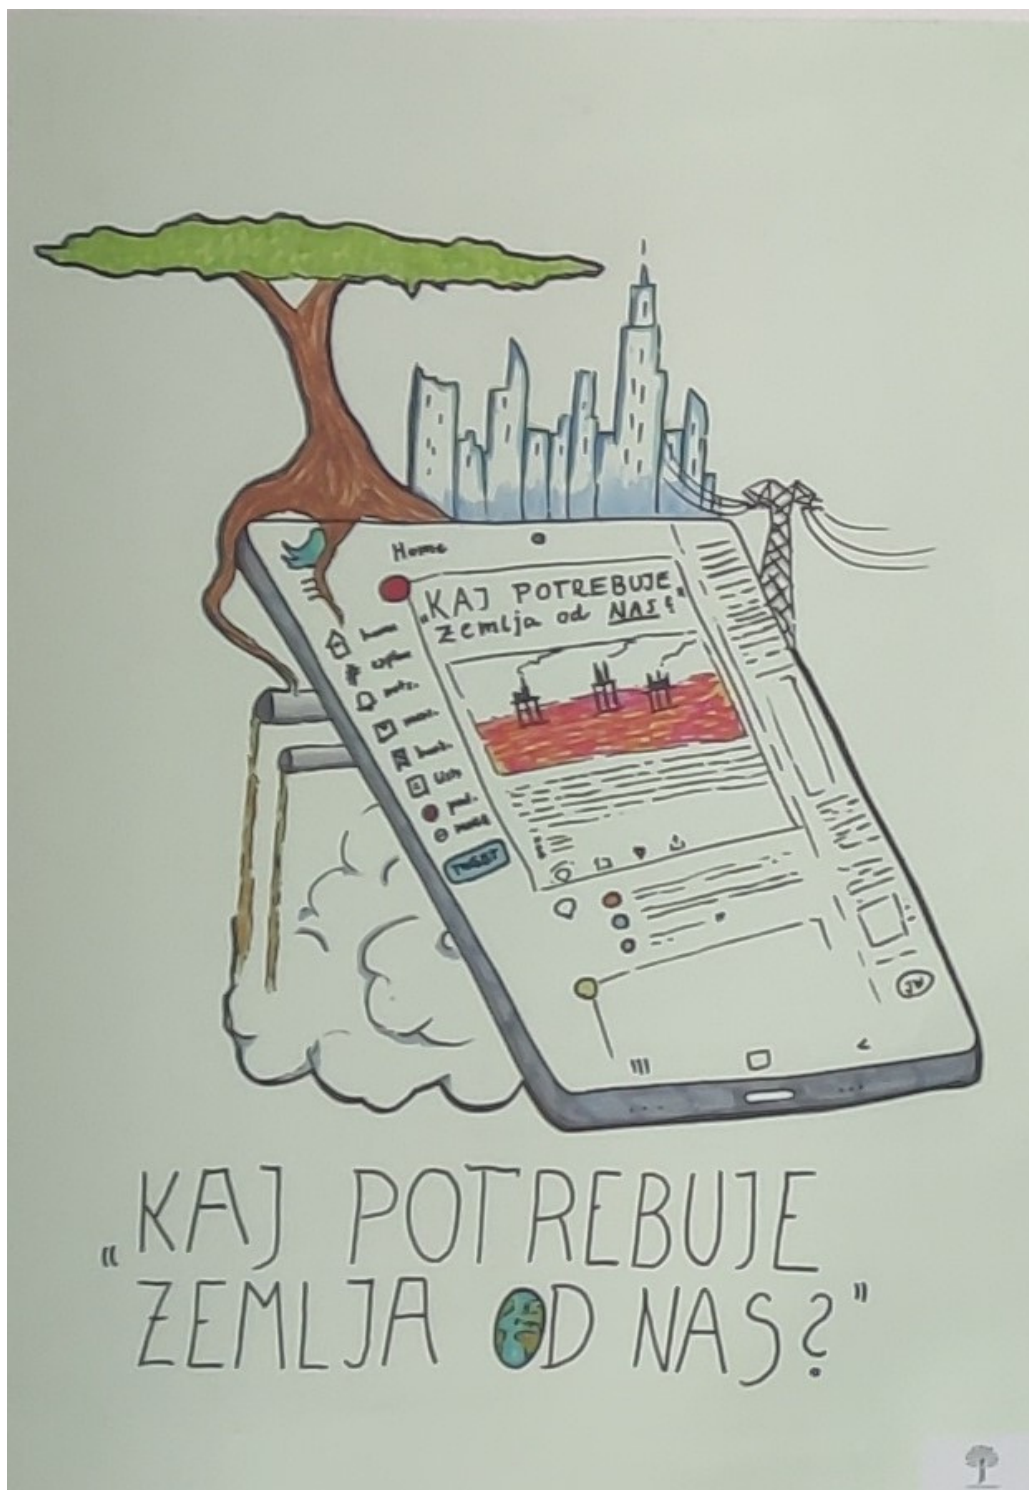 Home
„KAJ POTREBUJE
zemlja od NAS?"
home
Lists
TWEET
„KAJ POTREBUJE
ZEMLJA OD NAS?"